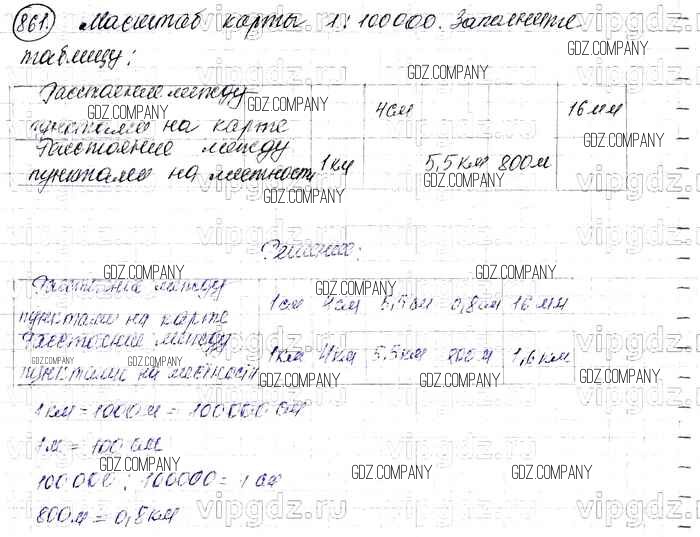 861. Масштаб карты 1:100000. Заполните
таблицу:
Расстояние между
пунктами на карте 4см 16 мм
Расстояние между
пунктами на местности 1км 5,5км 800м
Решение:
Расстояние между
пунктами на карте 1см 4см 5,5см 0,8см 16 мм
Расстояние между
пунктами на местности 1км 4км 5.5км 800м 1,6 км
1км = 1000м = 100000 см
1м = 100 см
100000 : 100000 = 1 см
800м = 0,8 км
GDZ.COMPANY
vipgdz.ru